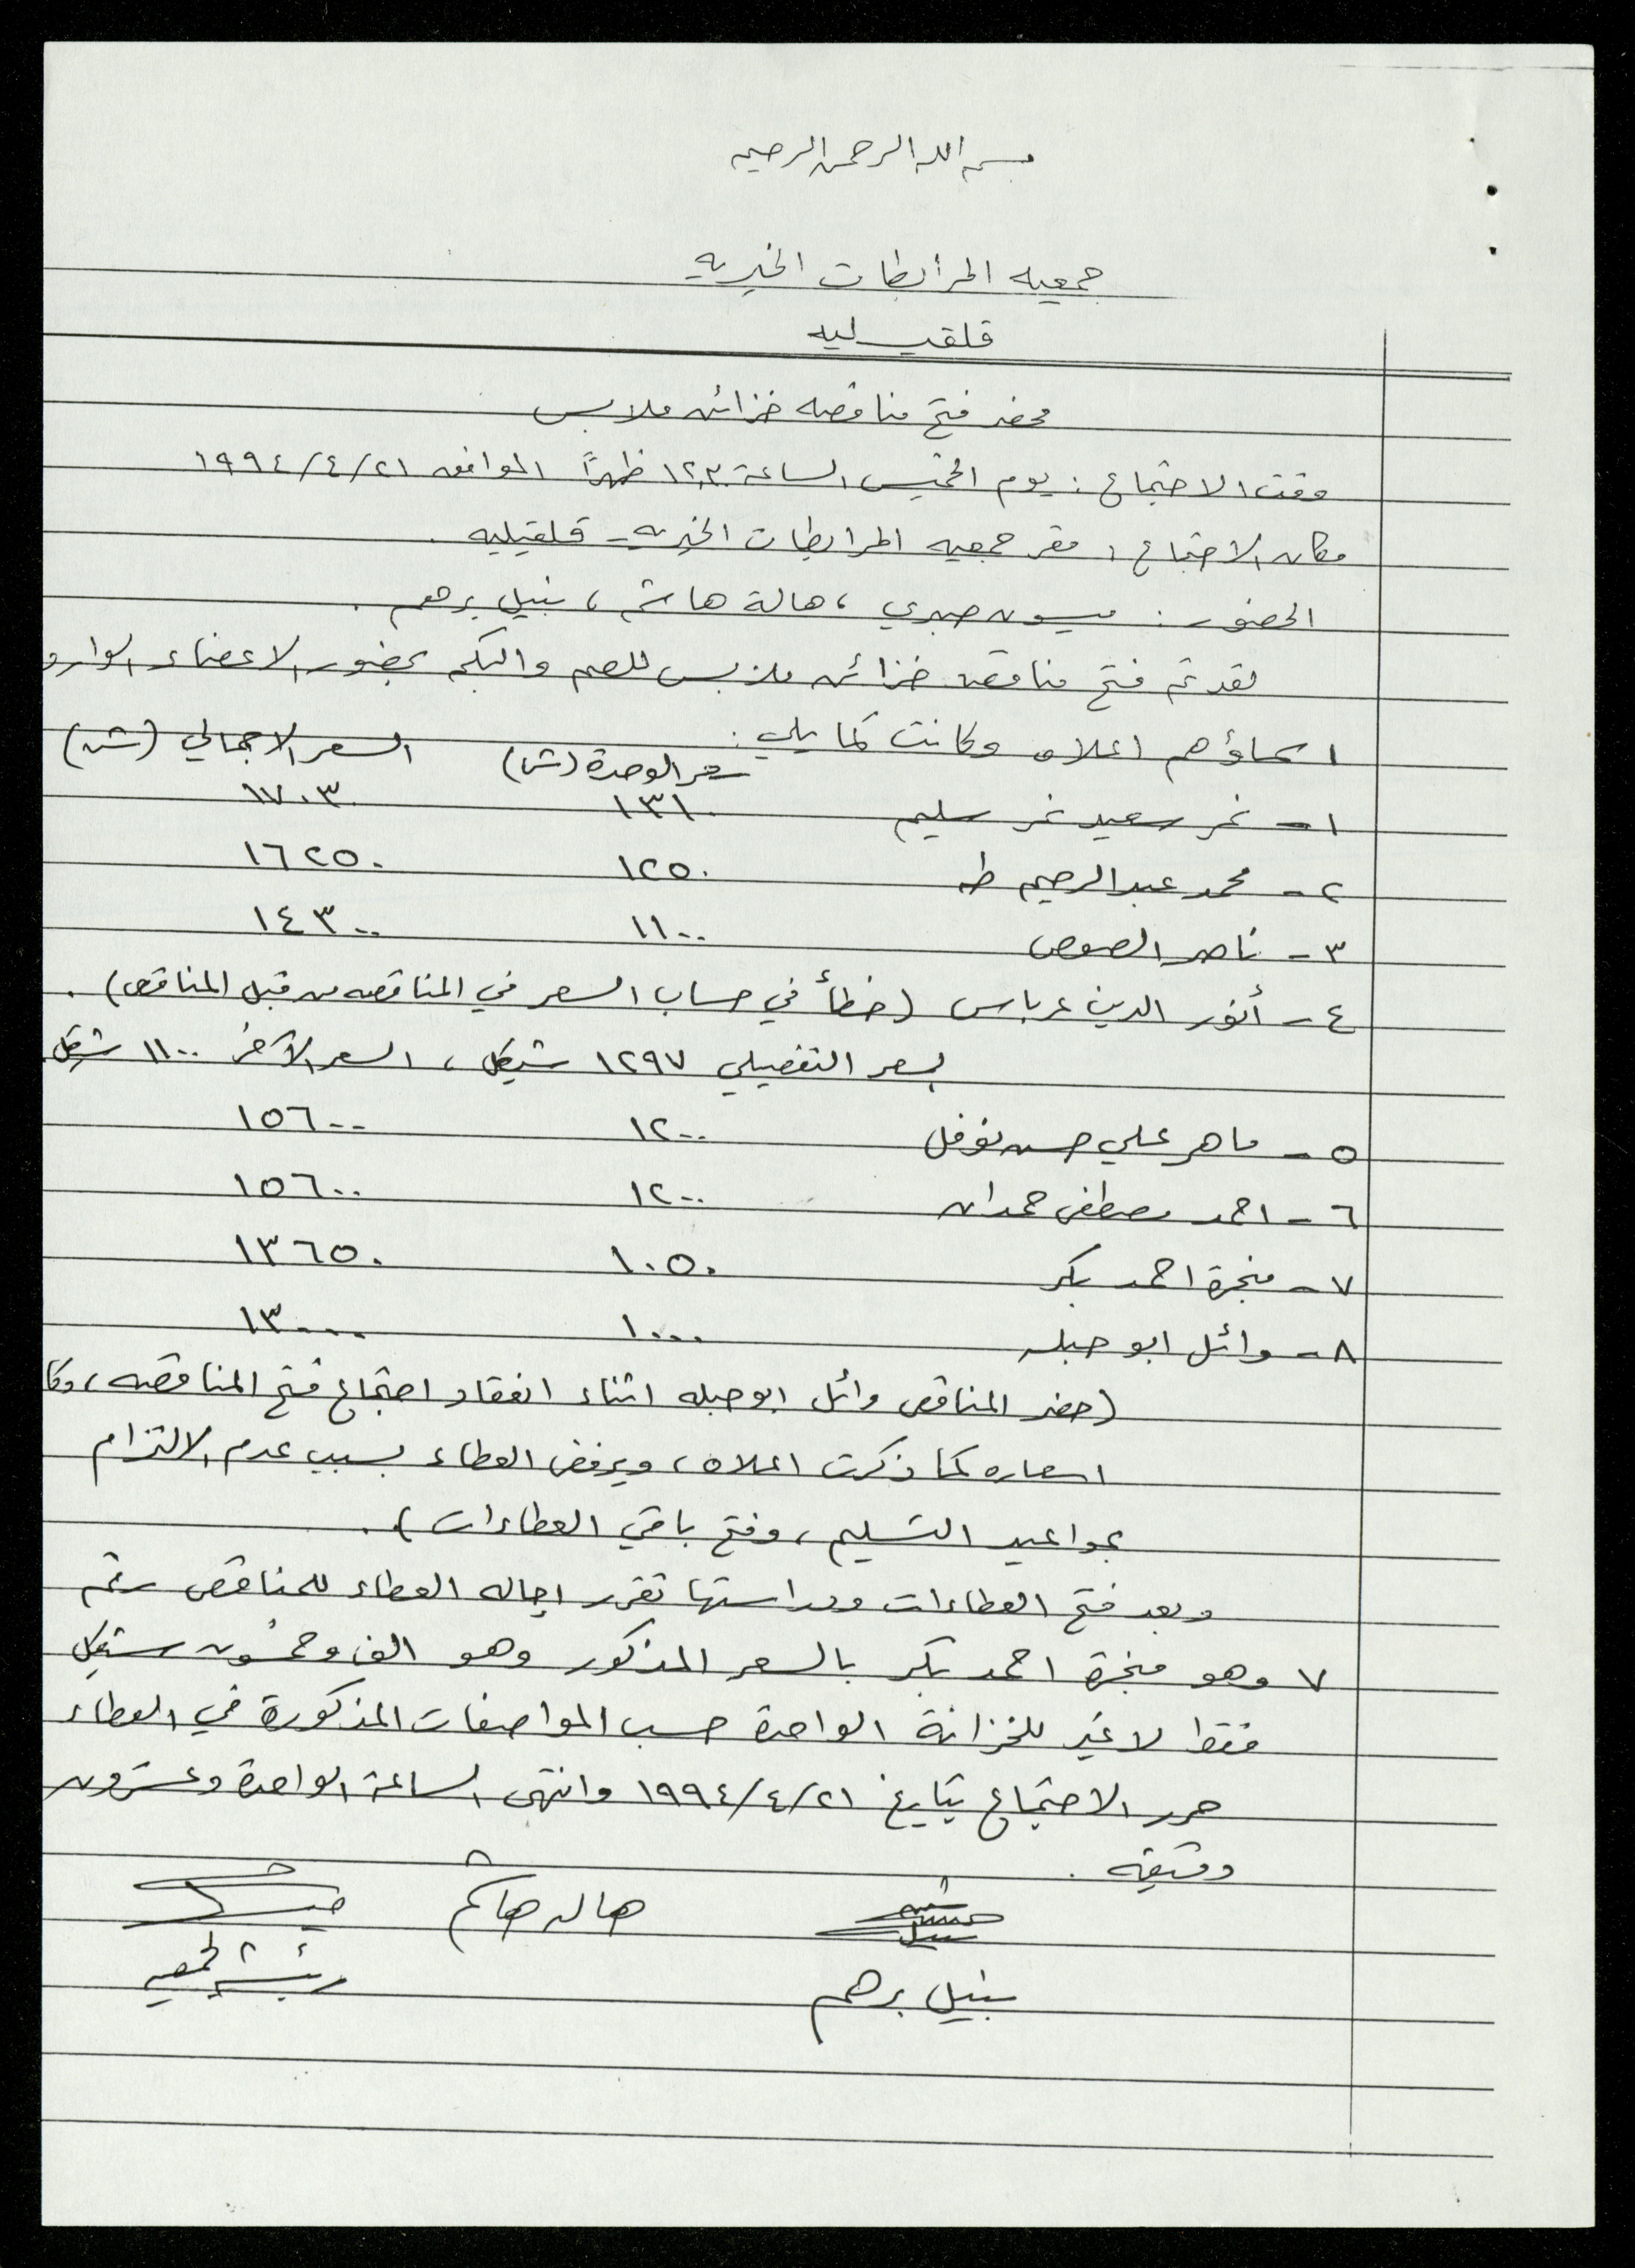 بسم الله الرحمن الرحيم
جمعيه المرابطات الخيريه
قلقيليه
محضر فتح مناقصه خزائن ملابس
وقت الاجتماع : يوم الخميس الساعة ١٢,٣٠ ظهراً الموافق ٢١/٤/١٩٩٤
مكان الاجتماع : مقر جمعيه المرابطات الخيريه - قلقيليه .
الحضور : ميسون صبري ، هالة هاشم ، نبيل برهم .
لقد تم فتح مناقصه خزائن ملابس للصم والبكم بحضور الاعضاء الوارد
اسماؤهم اعلاه وكانت كما يلي :
سعر الوحدة (ش) السعر الاجمالي (ش)
١ - نمر سعيد نمر سليم ١٣١٠ ١٧٠٣٠
٢ - محمد عبد الرحيم طه ١٢٥٠ ١٦٢٥٠
٣ - ناصر الصوص ١١٠٠ ١٤٣٠٠
٤ - أنور الدين عرباس (خطأ في حساب السعر في المناقصه من قبل المناقص) .
بسعر التفصيلي ١٢٩٧ شيكل ، السعر الآخر ١١٠٠ شيكل
٥ - ماهر علي حسن نوفل ١٢٠٠ ١٥٦٠٠
٦ - احمد مصطفى حمدان ١٢٠٠ ١٥٦٠٠
٧ - منجرة احمد بكر ١٠٥٠ ١٣٦٥٠
٨ - وائل ابو حبله ١٠٠٠ ١٣٠٠٠
(حضر المناقص وائل ابو حبله اثناء انعقاد اجتماع فتح المناقصه ، وكا
اسعاره كما ذكرت اعلاه ، ويرفض العطاء بسبب عدم الالتزام
بمواعيد التسليم ، وفتح باقي العطاءات ) .
وبعد فتح العطاءات ودراستها تقرر احاله العطاء للمناقص رقم
٧ وهو منجرة احمد بكر بالسعر المذكور وهو الف وخمسون شيكل
فقط لا غير للخزانة الواحدة حسب المواصفات المذكورة في العطاء
حرر الاجتماع بتاريخ ٢١/٤/١٩٩٤ وانتهى الساعة الواحدة وعشرون
دقيقه .
هاله هاشم
نبيل برهم رئيسة الجمعيه